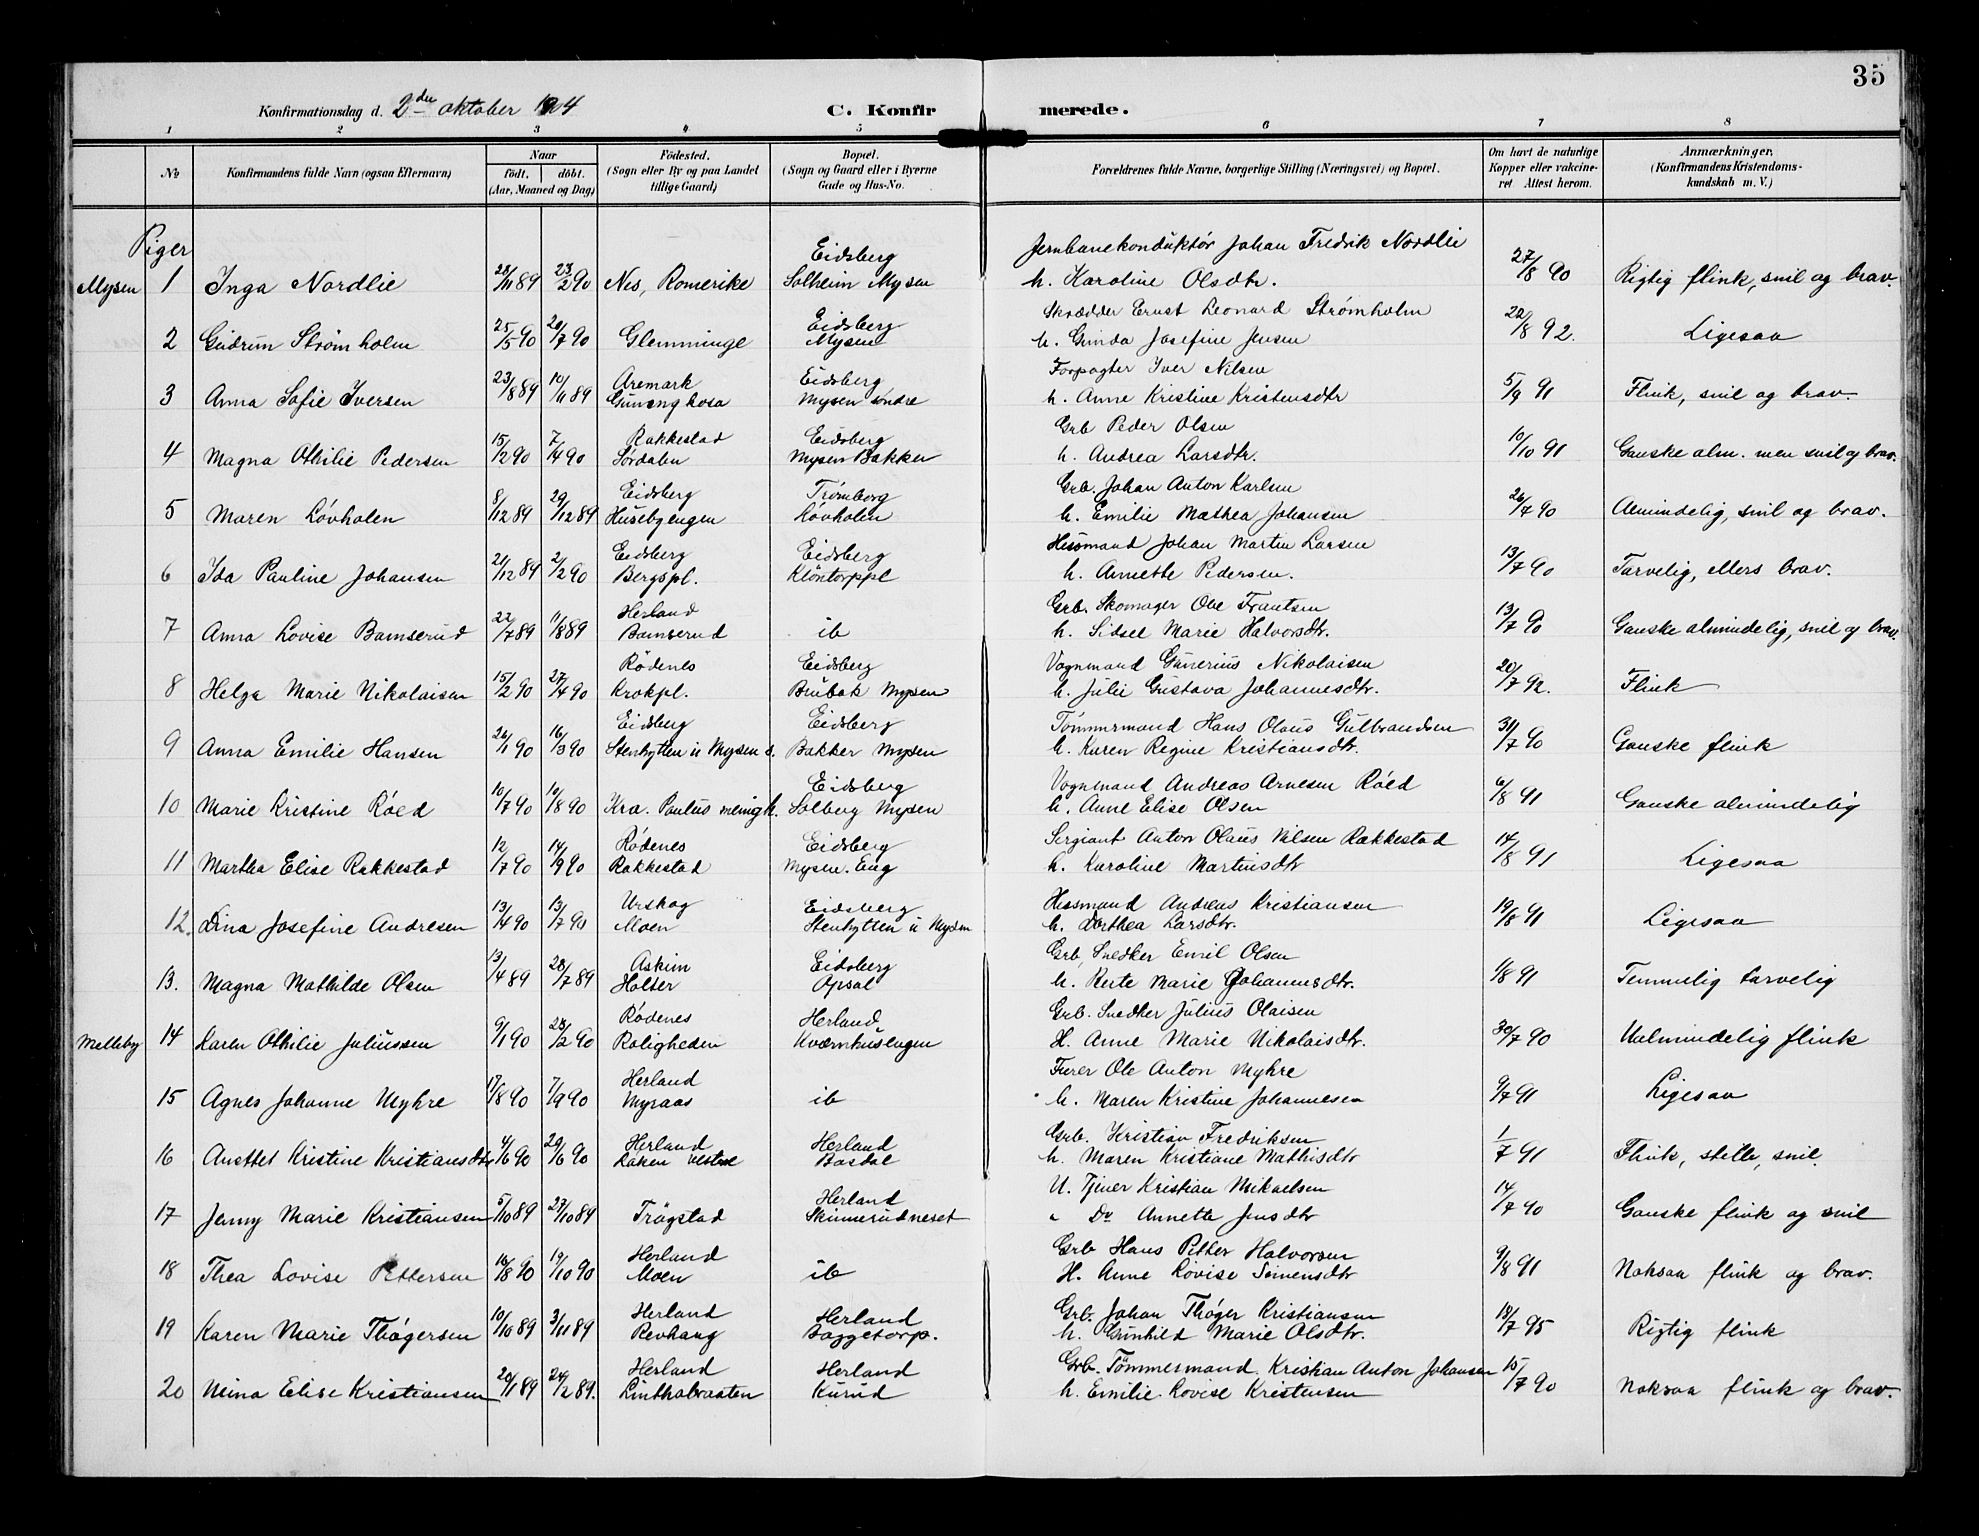 35
Konfirmationsdag d. 2den oktober 1904 C. Konfirmerede.
1 2 3 4 5 6 7 8
No Konfirmandens fulde Navn (ogsaa Efternavn) Naar født. døbt. (Aar, Maaned og Dag) Fødested. (Sogn eller By og paa Landet tillige Gaard) Bopæl. (Sogn og Gaard eller i Byerne Gade og Hus-No. Forældrenes fulde Navne, borgerlige Stilling (Næringsvei) og Bopæl. Om havt de naturlige Kopper eller vakcineret. Attest herom. Anmærkninger. (Konfirmandens Kristendomskundskab m. V.)
Piger
Eidsberg Jernbanekonduktør Johan Fredrik Nordlie
Mysen 1 Inga Nordlie 28/11 89 23/2 90 Nes, Romerike Solheim Mysen h. Karoline Olsdtr. 27/8 90 Rigtig flink, snil og brav.
Eidsberg Skrædder Ernst Leonard Strømholm
2 Gudrun Strømholm 25/5 90 20/7 90 Glemminge Mysen h. Gunda Josefine Jensen 22/8 92. Ligesaa
Aremark Eidsberg Forpagter Iver Nilsen
3 Anna Sofie Iversen 23/8 89 10/11 89 Mysen søndre h. Anne Kristine Kristensdtr 5/9 91 Flink, snil og brav.
Rakkestad Eidsberg Grb Peder Olsen
4 Magna Othilie Pedersen 15/2 90 7/4 90 Sørdalen Mysen Bakker h. Andrea Larsdtr. 10/10 91 Ganske alm. men snil og brav.
Eidsberg Trømborg Grb. Johan Anton Karlsen
5 Maren Løvholen 8/12 89 29/12 89 Husebyengen Løvholen h. Emilie Mathea Johansen 26/7 90 Almindelig, snil og brav.
Eidsberg Eidsberg Husmand Johan Martin Larsen
6 Ida Pauline Johansen 21/12 89 2/2 90 Bergspl. Kløntorppl h. Annette Pedersen. 13/7 90 Tarvelig, ellers brav.
Herland Grb. Skomager Ole Frantsen
7 Anna Lovise Bamserud 22/7 89 11/8 89 Bamserud ib h. Sidsel Marie Halvorsdtr. 13/7 90 Ganske almindelig, snil og brav.
Rødenes Eidsberg Vognmand Gunerius Nikolaisen
8 Helga Marie Nikolaisen 15/2 90 27/4 90 Krokpl. Brubak Mysen h. Julie Gustava Johannesdtr. 20/7 92. Flink
Eidsberg Eidsberg Tømmermand Hans Olaus Gulbrandsen
9 Anna Emilie Hansen 26/1 90 16/3 90 Stenhytten u Mysen s. Bakker Mysen h. Karen Regine Kristiansdtr. 31/7 90 Ganske flink
Eidsberg Vognmand Andreas Arnesen Røed
10 Marie Kristine Røed 10/7 90 10/8 90 Kra. Paulus menigh. Solberg Mysen h. Anne Elise Olsen 6/8 91 Ganske almindelig
Rødenes Eidsberg Sergiant Anton Olaus Nilsen Rakkestad
11 Martha Elise Rakkestad 12/7 90 14/9 90 Rakkestad Mysen. Eng h. Karoline Martinsdtr 14/8 91 Ligesaa
Urskog Eidsberg Husmand Andreas Kristiansen
12. Dina Josefine Andresen 13/4 90 13/7 90 Moen Stenhytten u Mysen h. Dorthea Larsdtr. 19/8 91 Ligesaa
Askim Eidsberg Grb Snedker Emil Olsen
13. Magna Mathilde Olsen 13/4 89 28/7 89 Holter Opsal h. Berte Marie Johannesdtr. 1/8 91 Temmelig tarvelig
Rødenes Herland Grb. Snedker Julius Olaisen
Melleby 14 Karen Othilie Juliussen 9/1 90 23/2 90 Roligheden Kværnhusengen H. Anne Marie Nikolaisdtr. 30/7 90 Ualmindelig flink
Herland Furer Ole Anton Myhre
15 Agnes Johanne Myhre 17/8 90 7/9 90 Myraas ib h. Maren Kristine Johannesen 9/7 91 Ligesaa
Herland Herland Grb. Kristian Fredriksen
16 Anettet Kristine Kristiansdtr 4/6 90 29/6 90 Laken vestre Basdal h. Maren Kristiane Mathisdtr 1/7 91 Flink, stille, snil.
Herland U. Tjener Kristian Mikaelsen
17 Jenny Marie Kristiansen 5/10 89 27/10 89 Trøgstad Skinnerudneset " Do Annette Jensdtr 14/7 90 Ganske flink og snil
Herland Grb Hans Petter Halvorsen
18 Thea Lovise Pettersen 16/8 90 19/10 90 Moen ib H. Anne Lovise Simensdtr 9/8 91 Noksaa flink og brav.
Herland Herland Grb. Johan Thøger Kristiansen
19 Karen Marie Thøgersen 10/10 89 3/11 89 Revhaug Baggetorp. h. Gunhild Marie Olsdtr. 18/7 95 Rigtig flink
Herland Herland Grb. Tømmermand Kristian Anton Johansen
20 Mina Elise Kristiansen 20/1 89 24/2 89. Linthalbraaten Kurud h. Emilie Lovise Kristensen 15/7 90 Noksaa flink og brav.